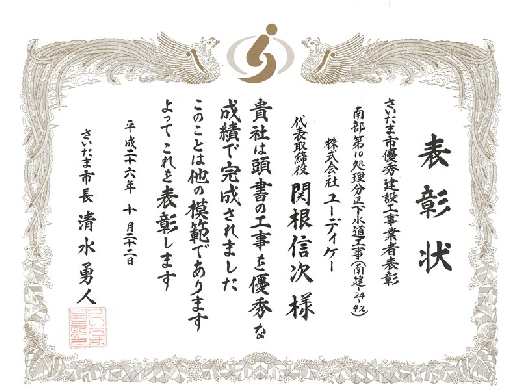 表彰状
さいたま市優秀建設工事業者表彰
南部第10処理分区下水道工事(南建-24-42)
株式会社 ユーディケー
代表取締役 関根信次 様
貴社は頭書の工事を優秀な
成績で完成されました
このことは他の模範であります
よってこれを表彰します
平成二十六年 十月二十二日
さいたま市長 清水勇人